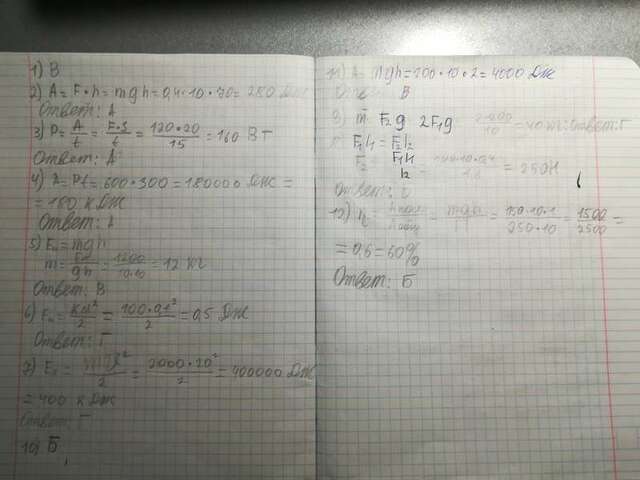 1) В
2) A = F · h = mgh = 0,4 · 10 · 70 = 280 Дж
Ответ: А
3) P = A/t = F·S/t = 120·20/15 = 160 Вт
Ответ: А
4) A = Pt = 600 · 300 = 180000 Дж =
= 180 кДж
Ответ: А
5) Eп = mgh
m = Eп/gh = 1200/10·10 = 12 кг
Ответ: В
6) Eп = kx²/2 = 100·0,1²/2 = 0,5 Дж
Ответ: Г
7) Eк = 2/2 = 2000·20²/2 = 400000 Дж
= 400 кДж
Ответ: Г
10) Б
11) A = mgh = 200 · 10 · 2 = 4000 Дж
В
m F2g 2F1g 2·200/10 = 40 кг Ответ: Г
F1l1 = F2l2
F2 = F1l1/l2 = = 250Н
Ответ:
= mgh = 150·10·1/250·10 = 1500/2500 =
= 0,6 = 60%
Ответ: Б